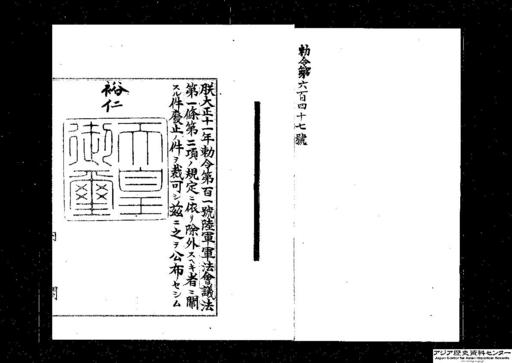 勅令第六百四十七號
朕大正十一年勅令第百一號陸軍軍法會議法
第一條第二項ノ規定ニ依リ除外スヘキ者ニ關
スル件廢止ノ件ヲ裁可シ茲ニ之ヲ公布セシム
裕仁
天皇
御璽
内閣
アジア歴史資料センター
Japan Center for Asian Historical Records